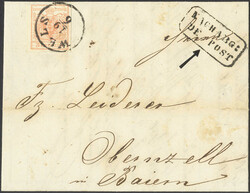 WELS
NACHARG:
DE POST
Fz. Leiderer
Obernzell
in Baiern